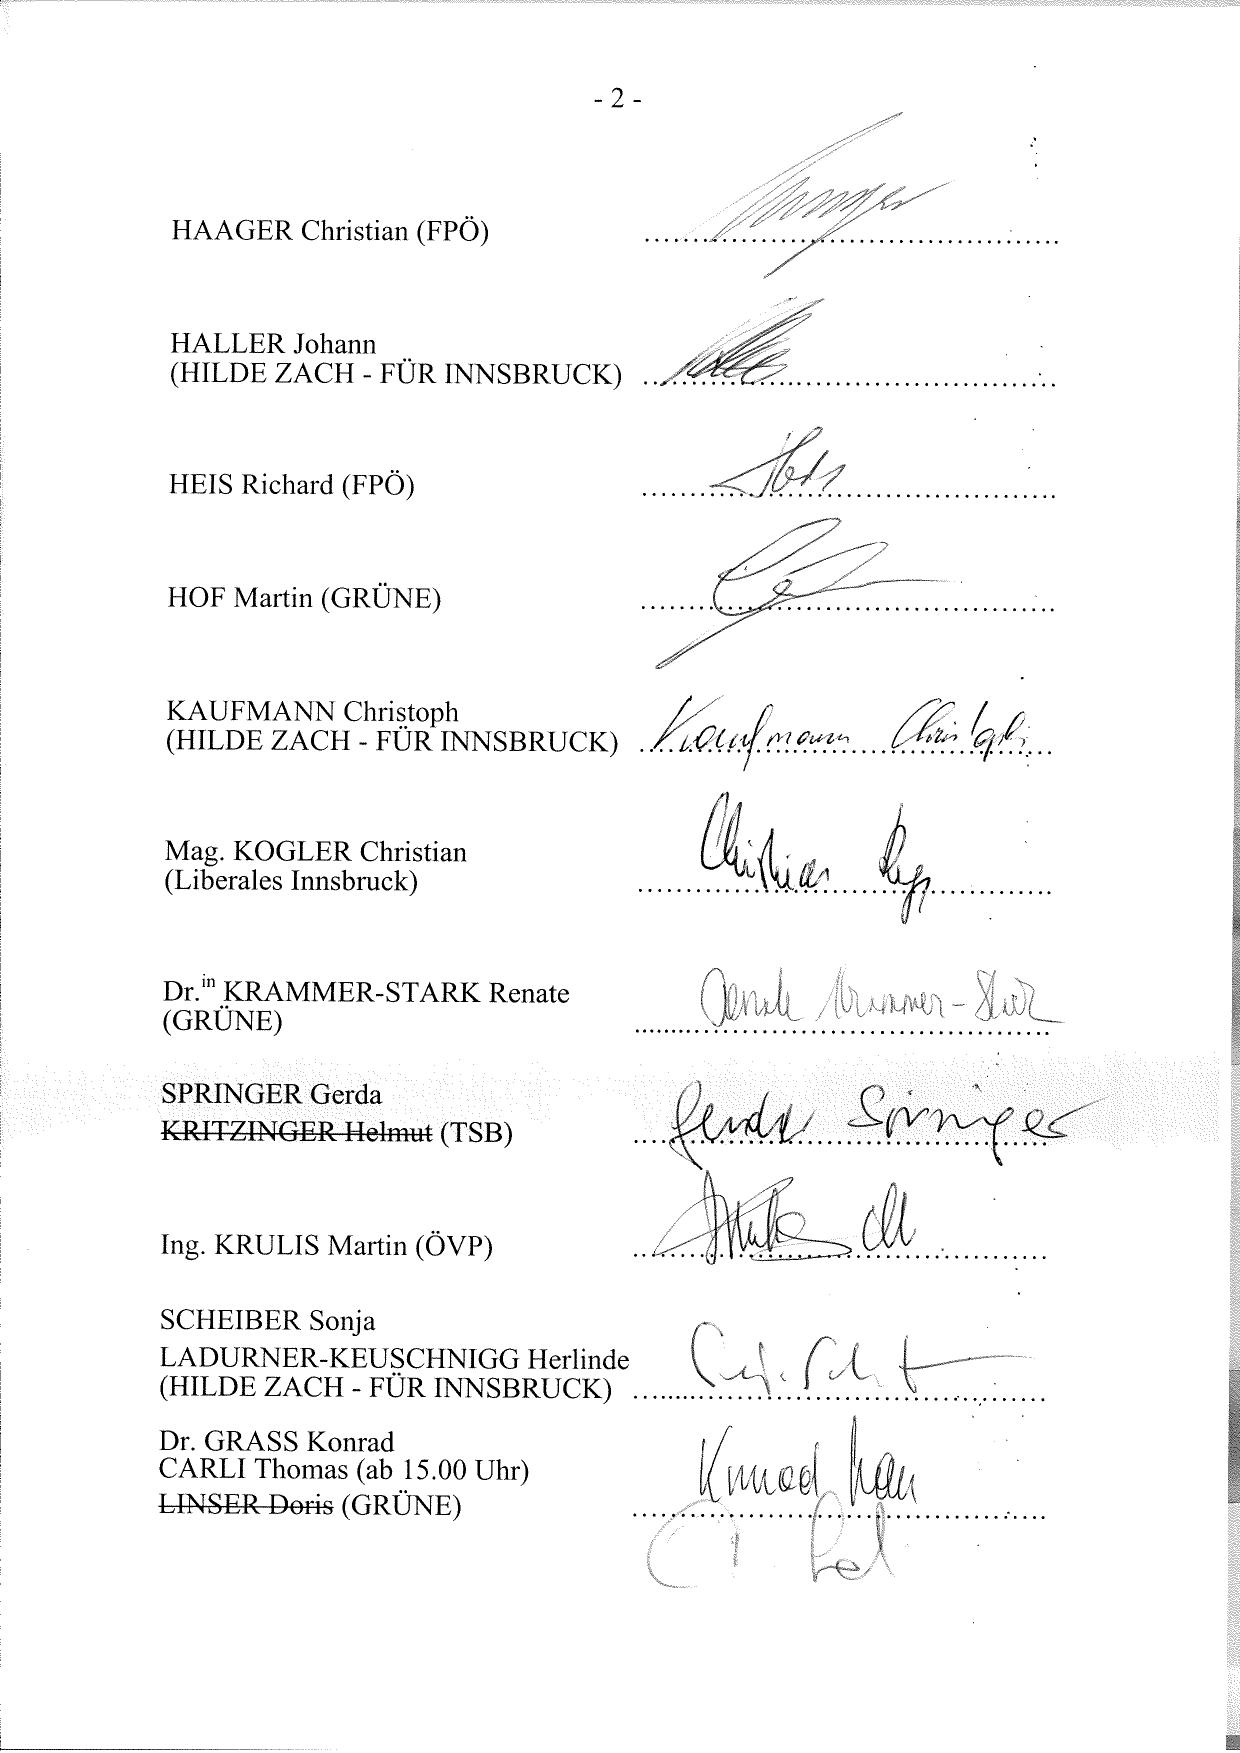 - 2 -
HAAGER Christian (FPÖ)
HALLER Johann
(HILDE ZACH - FÜR INNSBRUCK)
HEIS Richard (FPÖ)
HOF Martin (GRÜNE)
KAUFMANN Christoph
(HILDE ZACH - FÜR INNSBRUCK) Kaufmann Christoph
Mag. KOGLER Christian
(Liberales Innsbruck) Christian
Dr.in KRAMMER-STARK Renate Renate Krammer-Stark
(GRÜNE)
SPRINGER Gerda
KRITZINGER Helmut (TSB) Gerda Springer
Ing. KRULIS Martin (ÖVP)
SCHEIBER Sonja
LADURNER-KEUSCHNIGG Herlinde
(HILDE ZACH - FÜR INNSBRUCK)
Dr. GRASS Konrad
CARLI Thomas (ab 15.00 Uhr) Konrad
LINSER Doris (GRÜNE)